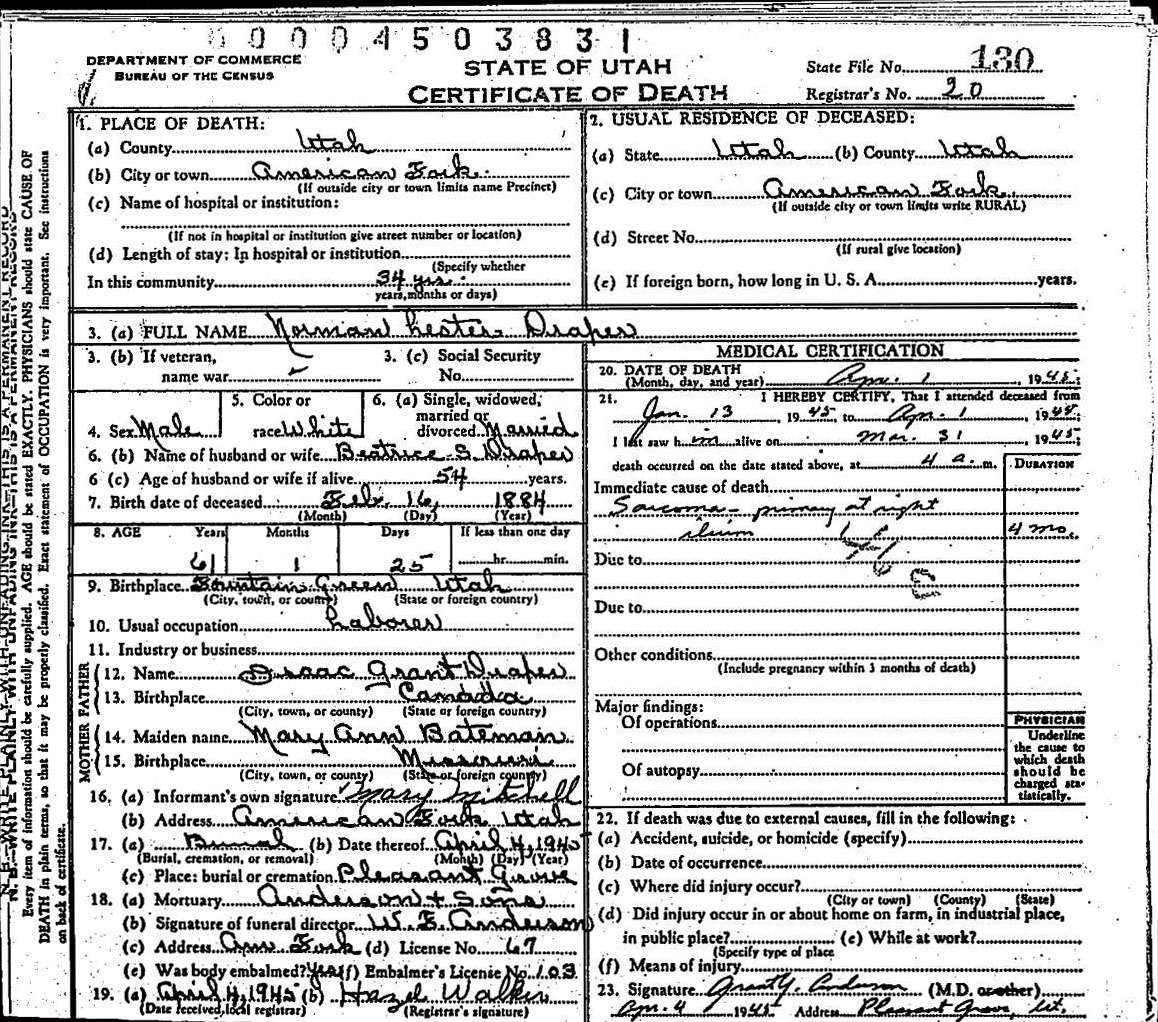 00004503831
DEPARTMENT OF COMMERCE
BUREAU OF THE CENSUS
STATE OF UTAH
CERTIFICATE OF DEATH
State File No. 130
Registrar's No. 20
1. PLACE OF DEATH:
(a) County Utah
(b) City or town American Fork
(If outside city or town limits name Precinct)
(c) Name of hospital or institution:
(If not in hospital or institution give street number or location)
(d) Length of stay: In hospital or institution
(Specify whether
In this community 34 yrs.
years, months or days)
2. USUAL RESIDENCE OF DECEASED:
(a) State Utah (b) County Utah
(c) City or town American Fork
(If outside city or town limits write RURAL)
(d) Street No.
(If rural give location)
(e) If foreign born, how long in U. S. A. years.
3. (a) FULL NAME Norman Lester Draper
3. (b) If veteran,
name war
3. (c) Social Security
No.
4. Sex Male
5. Color or
race White
6. (a) Single, widowed,
married or
divorced Married
6. (b) Name of husband or wife Beatrice S. Draper
6 (c) Age of husband or wife if alive 54 years.
7. Birth date of deceased Feb. 16, 1884
(Month) (Day) (Year)
8. AGE Years Months Days If less than one day
61 1 25 hr. min.
9. Birthplace Fountain Green Utah
(City, town, or county) (State or foreign country)
10. Usual occupation Laborer
11. Industry or business
FATHER
12. Name Isaac Grant Draper
13. Birthplace Canada
(City, town, or county) (State or foreign country)
MOTHER
14. Maiden name Mary Ann Bateman
15. Birthplace Missouri
(City, town, or county) (State or foreign country)
16. (a) Informant's own signature Mary Mitchell
(b) Address American Fork Utah
17. (a) Burial (b) Date thereof April 4, 1945
(Burial, cremation, or removal) (Month) (Day) (Year)
(c) Place: burial or cremation Pleasant Grove
18. (a) Mortuary Anderson & Sons
(b) Signature of funeral director W. E. Anderson
(c) Address Am Fork (d) License No. 67
(e) Was body embalmed? Yes (f) Embalmer's License No. 103
19. (a) April 4, 1945 (b) Hazel Walker
(Date received, local registrar) (Registrar's signature)
MEDICAL CERTIFICATION
20. DATE OF DEATH
(Month, day, and year) Apr. 1, 1945;
21. I HEREBY CERTIFY, That I attended deceased from
Jan. 13, 1945, to Apr. 1, 1945
I last saw him alive on Mar. 31, 1945;
death occurred on the date stated above, at 4 a. m.
DURATION
Immediate cause of death
Sarcoma - primary at right
ilium 4 mo.
Due to
Due to
Other conditions
(Include pregnancy within 3 months of death)
Major findings:
Of operations
Of autopsy
PHYSICIAN
Underline
the cause to
which death
should be
charged sta-
tistically.
22. If death was due to external causes, fill in the following:
(a) Accident, suicide, or homicide (specify)
(b) Date of occurrence
(c) Where did injury occur?
(City or town) (County) (State)
(d) Did injury occur in or about home on farm, in industrial place,
in public place? (e) While at work?
(Specify type of place
(f) Means of injury
23. Signature Grant Y. Anderson (M.D. or other)
Apr. 4 1945 Address Pleasant Grove, Ut.
N. B.—WRITE PLAINLY WITH UNFADING INK—THIS IS A PERMANENT RECORD
Every item of information should be carefully supplied. AGE should be stated EXACTLY. PHYSICIANS should state CAUSE OF
DEATH in plain terms, so that it may be properly classified. Exact statement of OCCUPATION is very important. See instructions
on back of certificate.